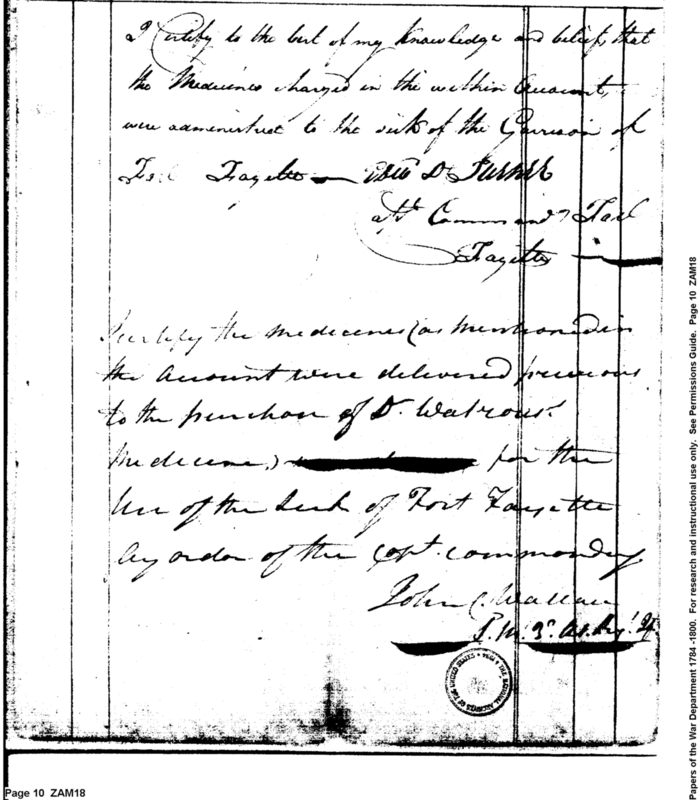 I Certify to the best of my Knowledge and belief, that
the Medicines charged in the within Account,
were administred to the sick of the Garrison of
Fort Fayette Edw D Turner
Capt Command Fort
Fayette
I certify the medecenes (as mentioned in
the Account were delivered previous
to the purchase of D. Watrous's
Medecene,) for the
Use of the Sick of Fort Fayette
by order of the Capt. commanding
John C. Wallace
THE NATIONAL ARCHIVES OF THE UNITED STATES • 1934
Page 10 ZAM18
Papers of the War Department 1784 -1800. For research and instructional use only. See Permissions Guide. Page 10 ZAM18